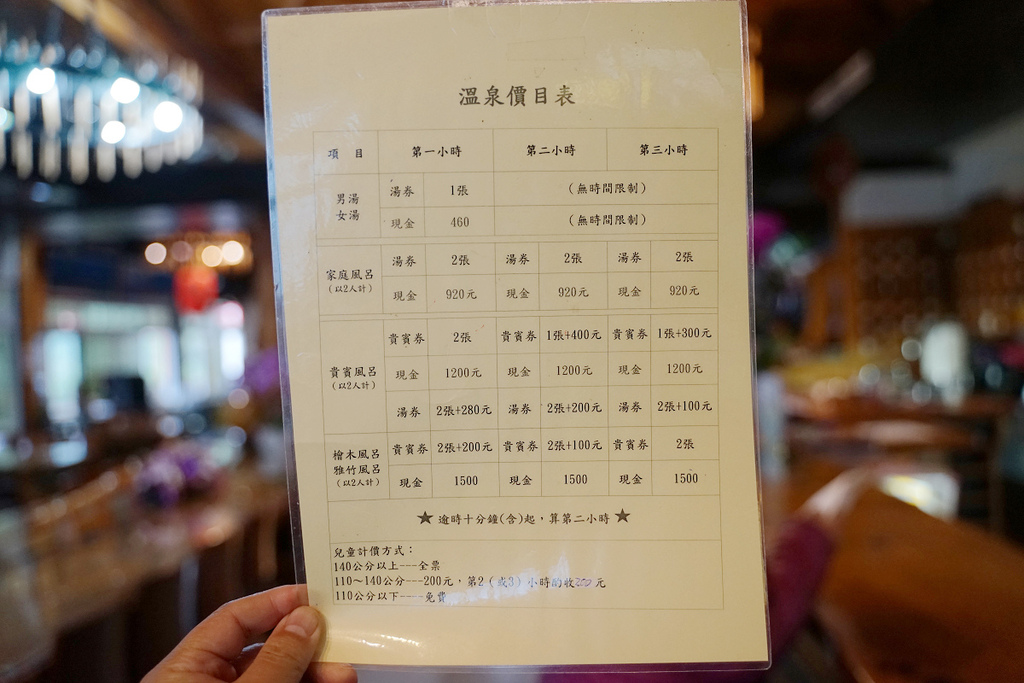 溫泉價目表
項 目 第一小時 第二小時 第三小時
男湯
女湯
湯券 1張 (無時間限制)
現金 460 (無時間限制)
家庭風呂
(以2人計)
湯券 2張 湯券 2張 湯券 2張
現金 920元 現金 920元 現金 920元
貴賓風呂
(以2人計)
貴賓券 2張 貴賓券 1張+400元 貴賓券 1張+300元
現金 1200元 現金 1200元 現金 1200元
湯券 2張+280元 湯券 2張+200元 湯券 2張+100元
檜木風呂
雅竹風呂
(以2人計)
貴賓券 2張+200元 貴賓券 2張+100元 貴賓券 2張
現金 1500 現金 1500 現金 1500
★逾時十分鐘(含)起,算第二小時★
兒童計價方式:
140公分以上---全票
110～140公分---200元,第2(或3)小時酌收200元
110公分以下----免費